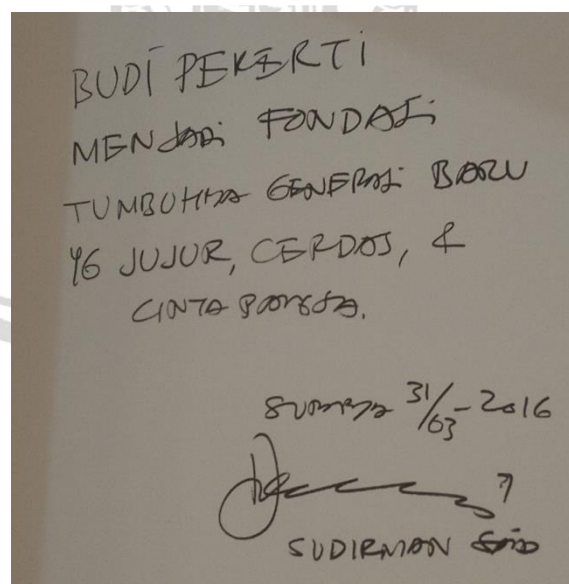 BUDI PEKERTI
MENJADI FONDASI
TUMBUHNYA GENERASI BARU
YG JUJUR, CERDAS, &
CINTA BANGSA.
SURABAYA 31/03-2016
SUDIRMAN SAID